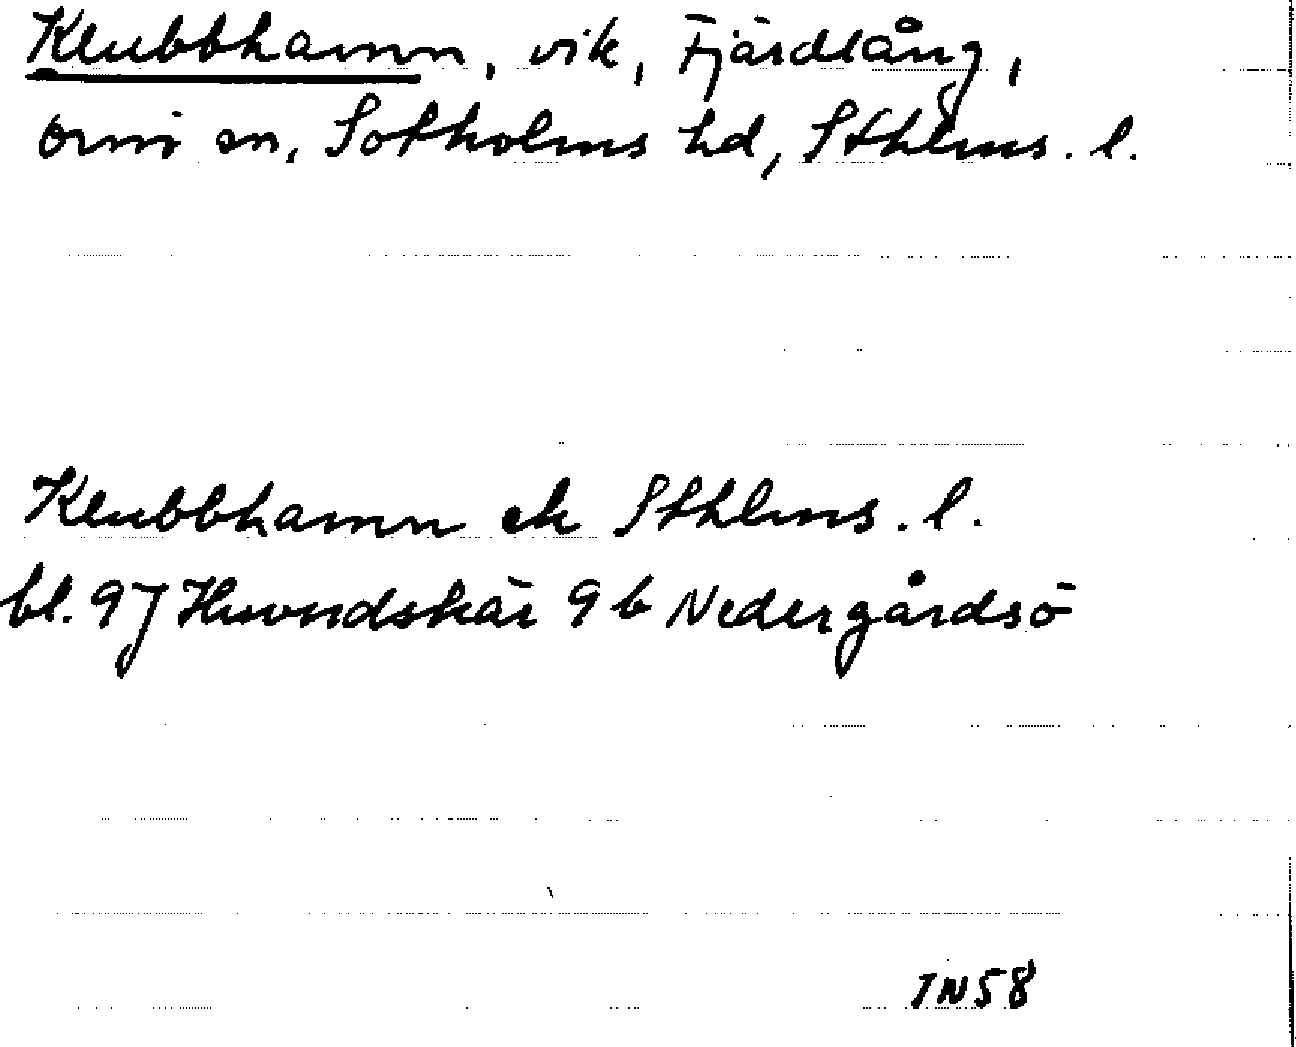 Klubbhamn, vik, Fjärdlång,
Ornö sn, Sotholms hd, Sthlms. l.
Klubbhamn ek Sthlms. l.
bl. 97 Huvudskär 9 b Nedergårdsö
TN58